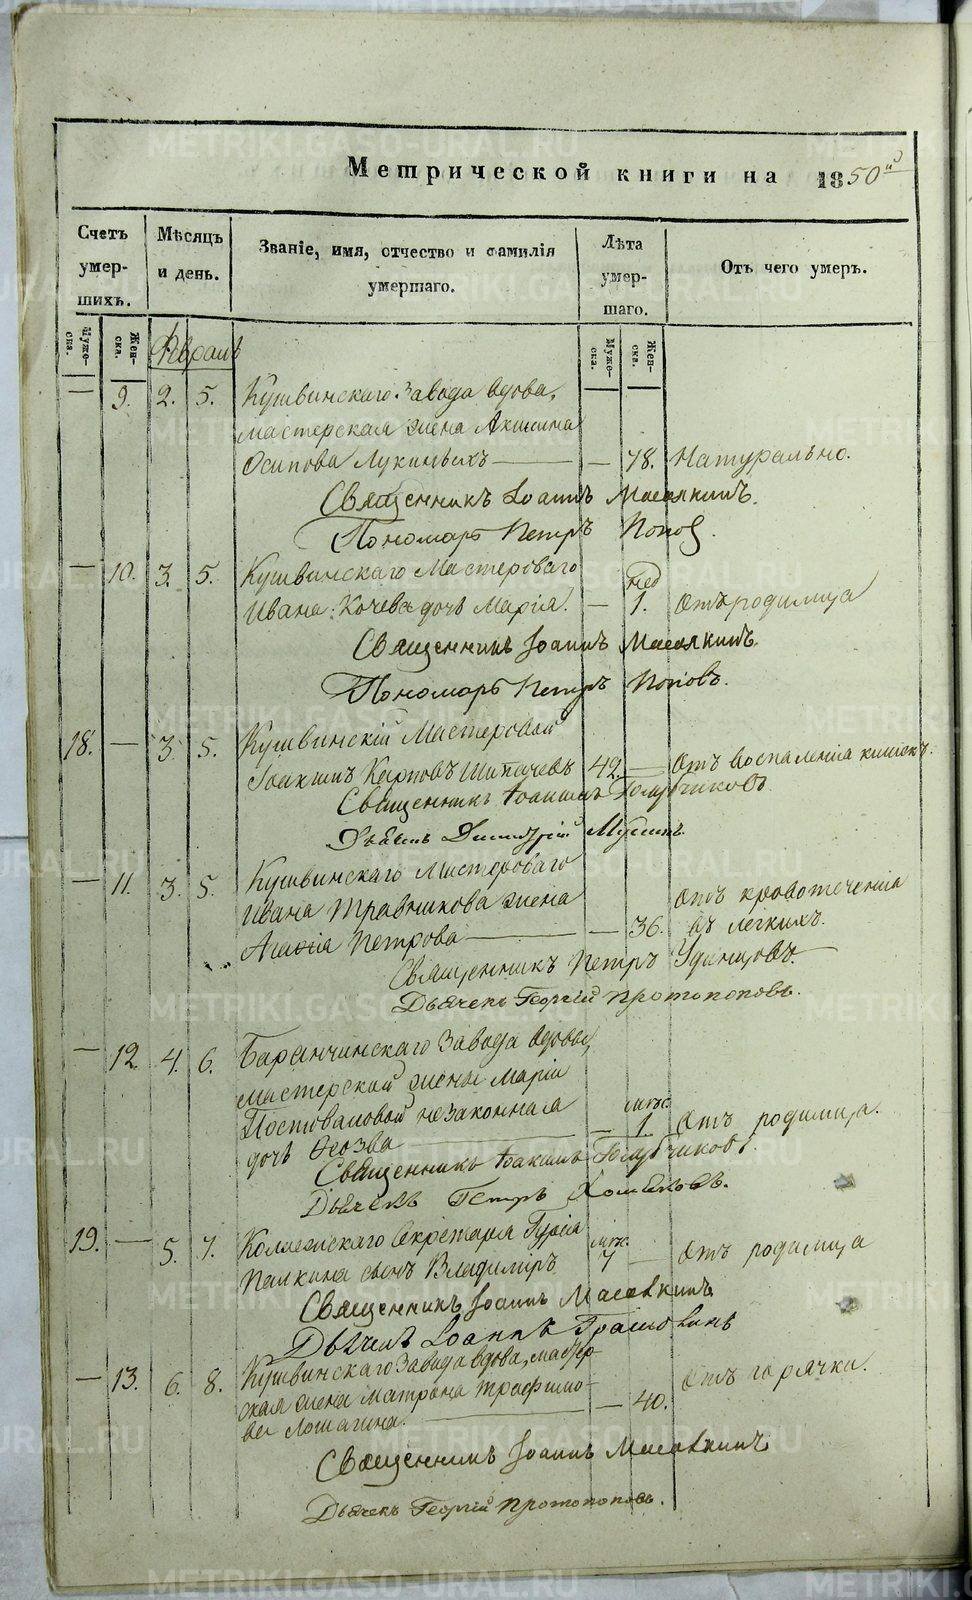 Метрической книги на 1850й
Счетъ умер-шихъ.
Мѣсяцъ и день.
Званіе, имя, отчество и фамилія умершаго.
Лѣта умер-шаго.
Отъ чего умеръ.
Муже-ска. Жен-ска.
Муже-ска. Жен-ска.
Февраль
— 9. 2. 5. Кушвинскаго Завода вдова,
мастерская жена Акилина
Осипова Лукиныхъ — — 78. Натурально.
Священникъ Іоаннъ Масляк
Пономарь Петръ Попов
— 10. 3. 5. Кушвинскаго Мастероваго нед
Ивана Кочева дочь Марія. — 1. Отъ родимца
Священникъ Іоаннъ
Пономарь Петръ Поповъ.
18. — 3. 5. Кушвинскій Мастеровой
Іоакимъ Карповъ Шипачевъ 42. — Отъ воспаленія кишекъ.
Священникъ Іоакимъ Голубчиковъ
Дьячекъ Димитрій
— 11. 3. 5. Кушвинскаго Мастероваго
Ивана Травникова жена Отъ кровотеченія
Агаѳія Петрова — — 36. въ легкихъ.
Священникъ Петръ Удинцовъ.
Дьячекъ Георгій Протопоповъ.
— 12. 4. 6. Баранчинскаго Завода вдовы,
мастерской жены Маріи
Постоваловой незаконная мѣс.
дочь — 1. Отъ родимца.
Священникъ Іоакимъ Голубчиковъ.
Дьячекъ Петръ Хомяковъ.
19. — 5. 7. Коллежскаго Секретаря Гурія мѣс.
Папкина сынъ Владимиръ 7 — Отъ родимца
Священникъ Іоаннъ
Дьячекъ Іоаннъ
— 13. 6. 8. Кушвинскаго Завода вдова, мастер-
ская жена Матрона Трофимо- — 40. Отъ горячки.
ва Лошагина.
Священникъ Іоаннъ
Дьячекъ Георгій Протопоповъ.
METRIKI.GASO-URAL.RU